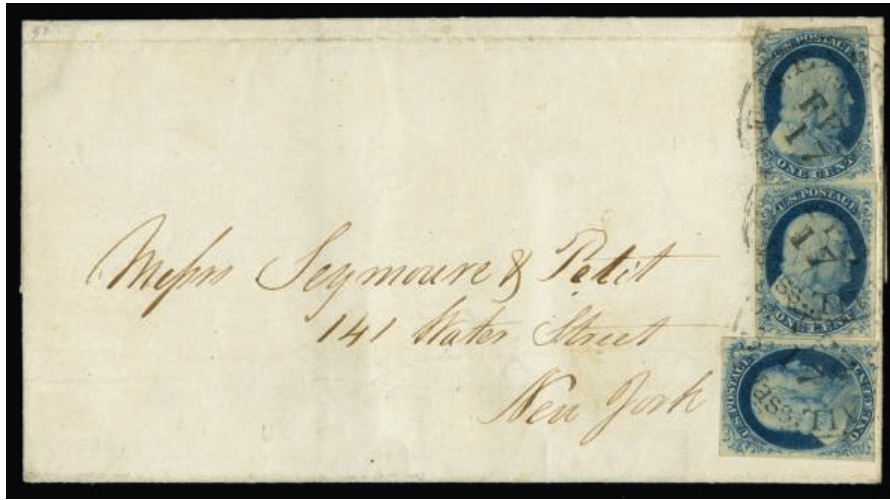 U.S. POSTAGE
FEB
17
ONE CENT
U.S. POSTAGE
17
ONE CENT
U.S. POSTAGE
17
ONE CENT
Messrs Seymoure & Petit
141 Water Street
New York